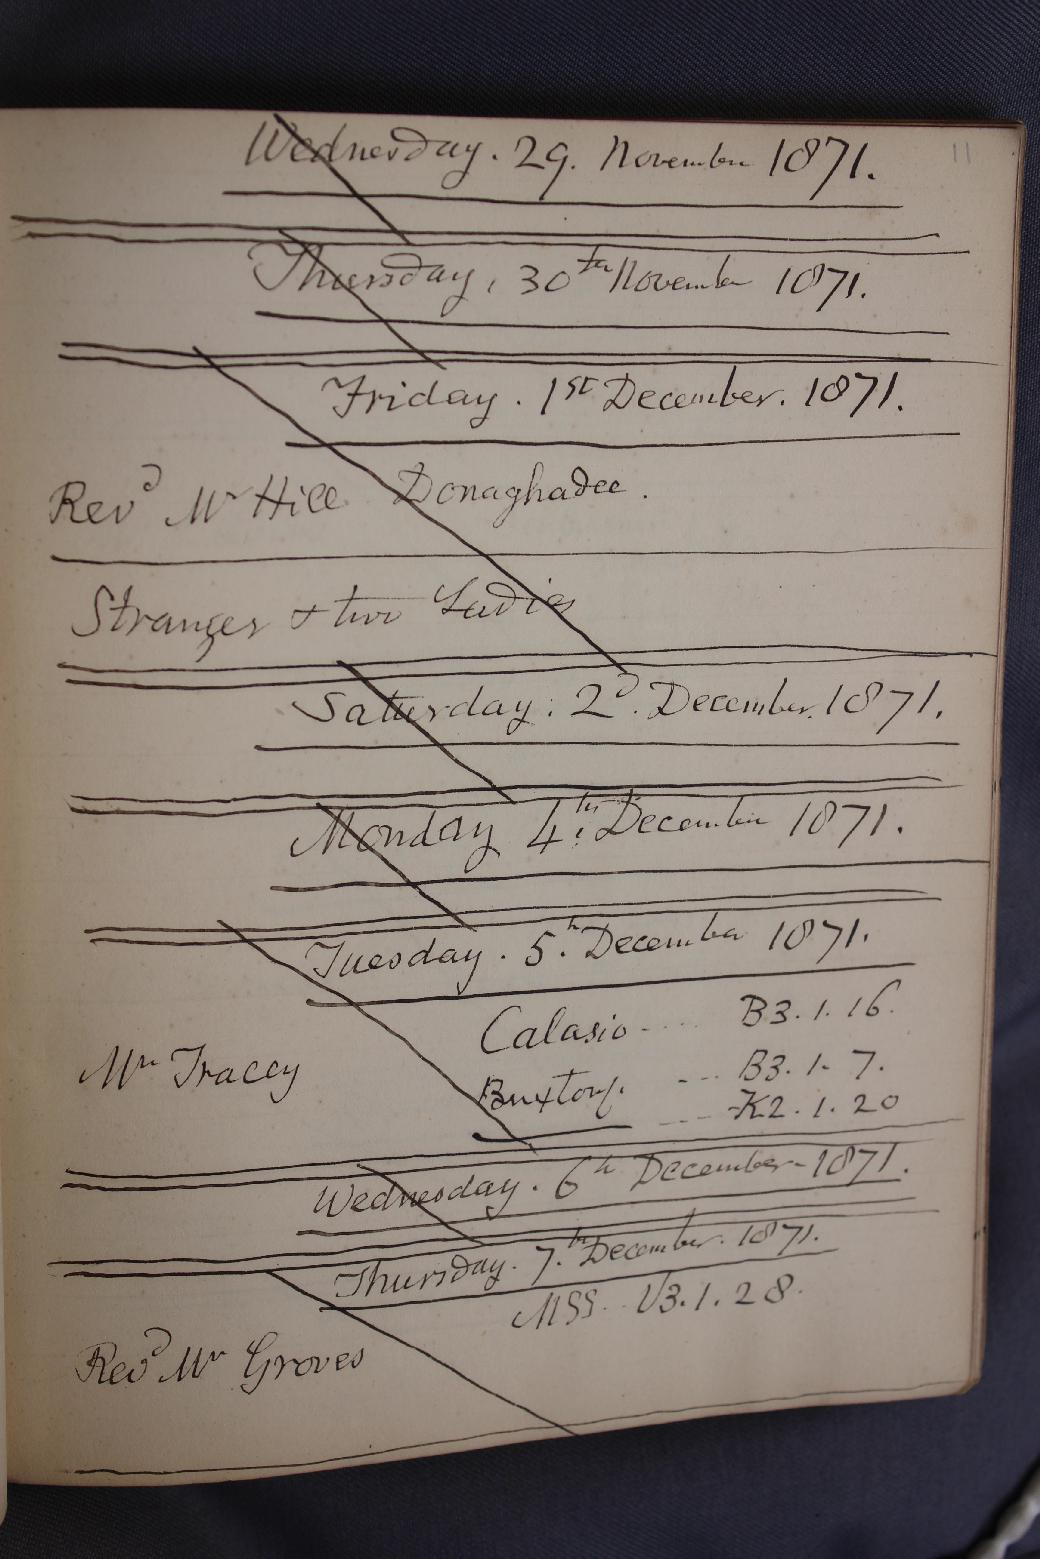 11
Wednesday. 29. November 1871.
Thursday, 30th November 1871.
Friday. 1st December. 1871.
Revd Mr Hill Donaghadee.
Stranger & two Ladies
Saturday. 2d. December. 1871.
Monday 4th December 1871.
Tuesday. 5th December 1871.
Calasio .... B3. 1. 16.
Mr Tracey
Buxtorf. --- B3. 1. 7.
--- K2. 1. 20
Wednesday. 6th December 1871.
Thursday. 7th December. 1871.
MSS. V3. 1. 28.
Revd Mr Groves